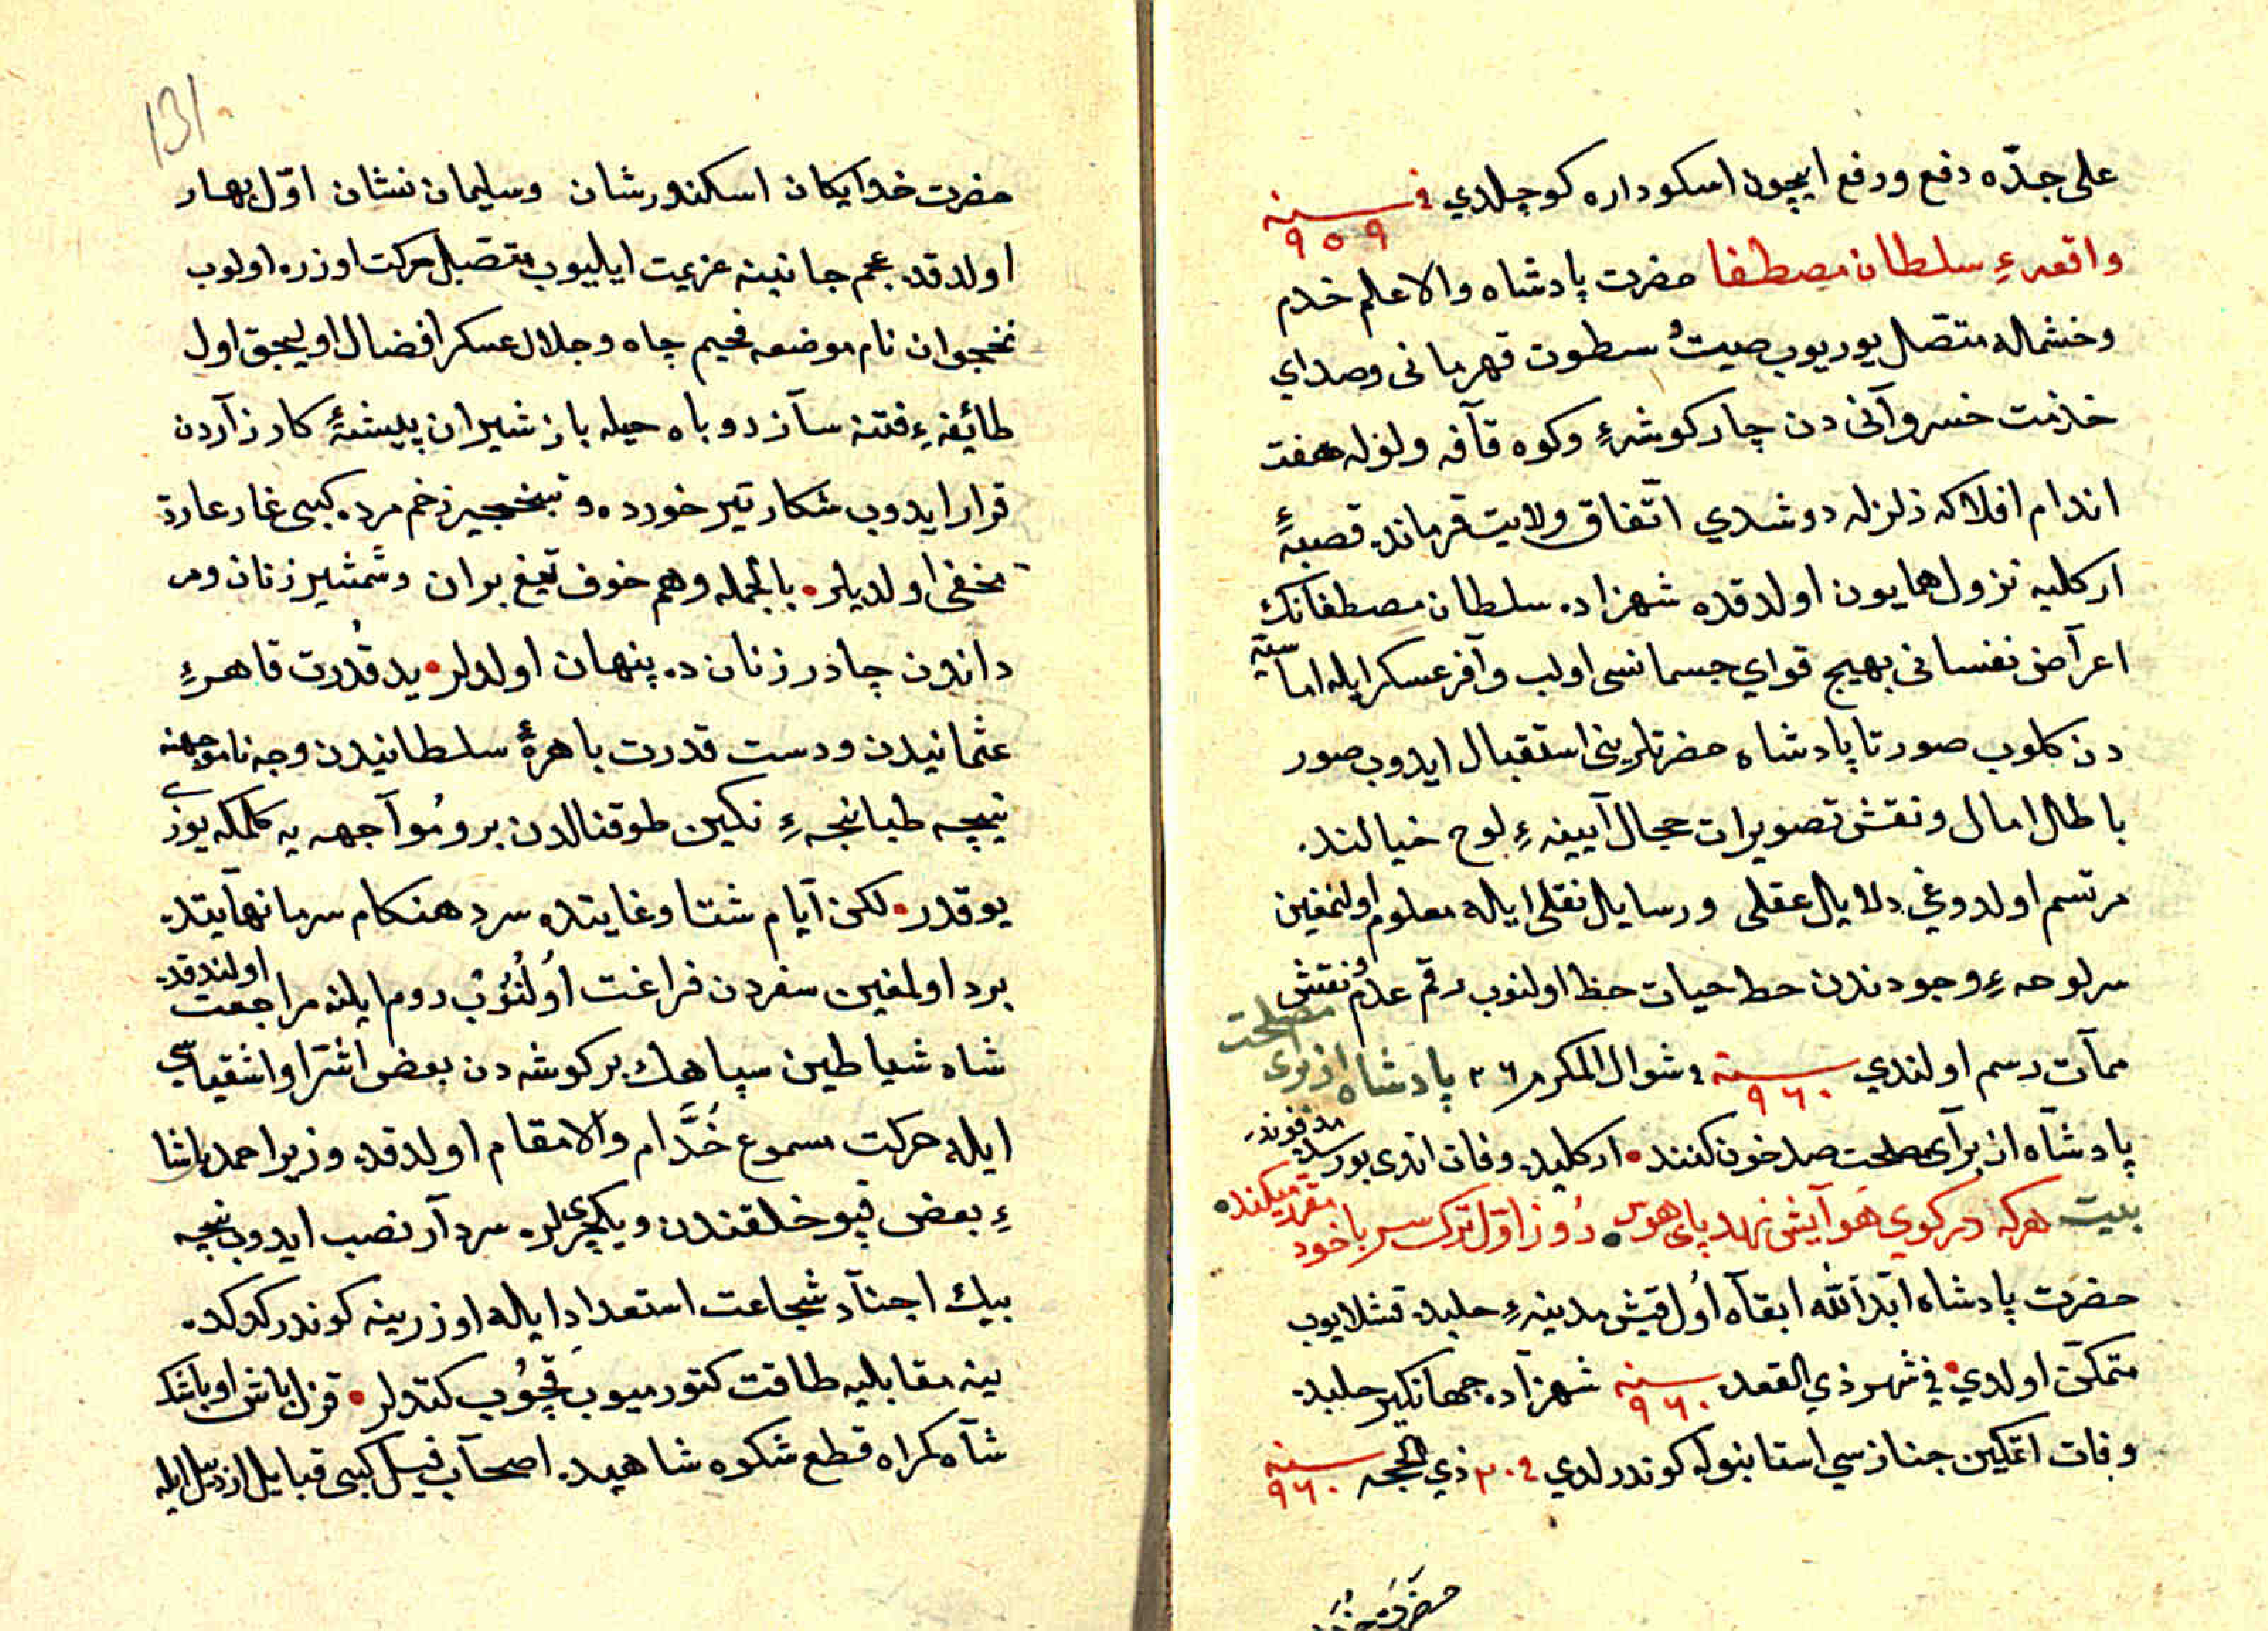 على جدّه دفع ورفع ايچون اسكوداره كوچلدي فى سنه ٩٥٩
واقعهءِ سلطان مصطفا حضرت پادشاه والاعلم خدم
وخشماله متصل يوريوب صيتُ سطوت قهرمانى وصداي
خدمت خسروآنى دن چاركوشهءِ وكوه قآفه ولوله هفت
اندام افلاكه زلزله دوشدي اتّفاق ولايت قرمانده قصبهٔ
اركليه نزول همايون اولدقده شهزاده سلطان مصطفانك
اعرآض نفسانى بهيج قواي جسمانسى اولب وآفر عسكر ايله اماسيّه
دن كلوب صورتا پادشاه حضرتلرينى استقبال ايدوب صور
باطال امال ونقش تصويرات محال آيينهءِ لوح خيالنده
مرتسم اولدوغى دلايل عقلى ورسايل نقلى ايله معلوم اولنمغين
سرلوحهءِ وجودندن حط حيات حظ اولنوب رقم عدم ونقش
ممآت رسم اولندي سنه ٩٦٠ فى شوال المكرم ٢٦ پادشاه از براى مصلحت
پادشآه از برآى مصلحت صد خون كنند • اركليده وفات اندى بورسده مدفوندر
بيت هركه در كوي هَوآيش نهد پاى هوس • رُوز اوّل ترك سر با خود مقرر ميكنده
حضرت پادشاه ابّدَ اللّٰه ابقآه اوُل قيش مدينهءِ حلبده قشلايوب
متمكّن اولدي • فى شهر ذي القعده سنه ٩٦٠ شهزآده جهانكير حلبده
وفات اتمكين جنازسي استانبوله كوندرلدي فى ٢٠ ذي الحجه سنه ٩٦٠
حضرت
131
حضرت خدايكان اسكندورشان وسليمان نشان اوّل بهار
اولدقده عجم جانبنه عزيمت ايليوب متصل حركت اوزره اولوب
نخجوان نام موضعه مخيم جاه وجلال عسكر افضال اوليجق اول
طائفهءِ فتنه سآز روباه حيله باز شيران بيشهٔ كارزآردن
قرار ايدوب شكار تير خورده ونخجير زخم مرده كبى غار عارة
مخفى اولديلر • بالجمله وهم خوف تيغ بران وشمشير زنان ومر
داندن چاذر زنان ده پنهان اولدلر • يد قُدرت قاهرهءِ
عثمانيدن ودست قدرت باهرهٔ سلطانيدن وجه ناموجهنه
نيچه طبانچهءِ نكين طوقنالدن برو مُوآجهه يه كلمكه يوزى
يوقدر • لكن آيام شتا وغايتده سرد هنكام سرما نهآيتده
برد اولمغين سفردن فراغت اوُلنُوُبْ روم ايلنه مراجعت اولندقده
شاه شياطين سپاهك بر كوشه دن بعض اشرا واشقياسى
ايله حركت مسموع خُدَّام والامقام اولدقده وزير احمد پاشا
ءِ بعض قپو خلقندن ويكچريلره سردآر نصب ايدوب نيچه
بيك اجنآد شجاعت استعداد ايله اوزرينه كوندركدكده
ينه مقابليه طاقت كتورميوب قچُوُب كتدلر • قزل باش اوباشك
شآه كمراه قطع شكوه شاهيده اصحآب فيل كبى قبايل ارذيل ايله